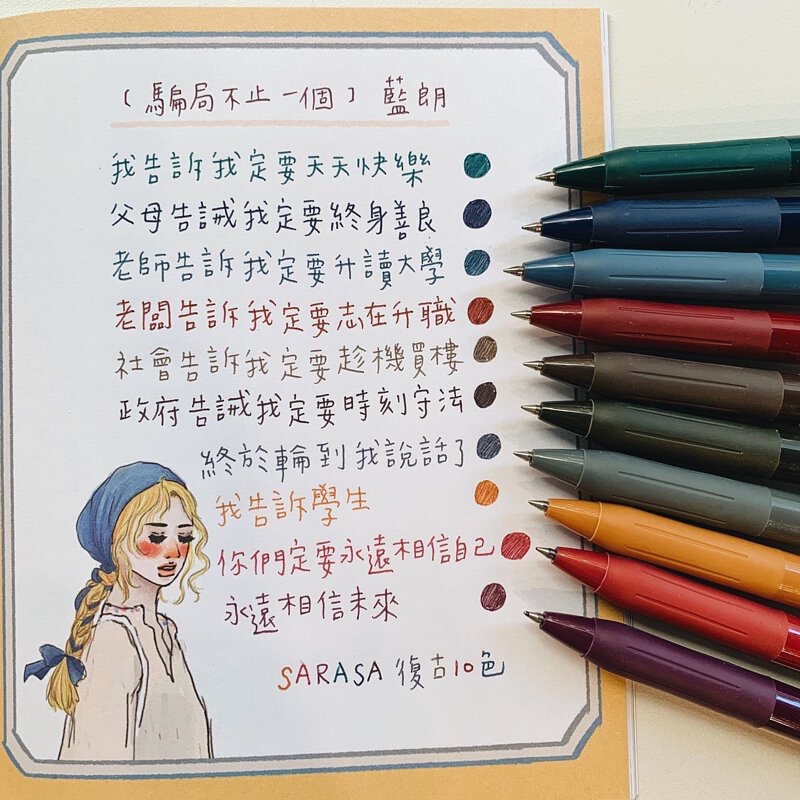 〔騙局不止一個〕藍朗
我告訴我定要天天快樂
父母告誡我定要終身善良
老師告訴我定要升讀大學
老闆告訴我定要志在升職
社會告訴我定要趁機買樓
政府告誡我定要時刻守法
終於輪到我說話了
我告訴學生
你們定要永遠相信自己
永遠相信未來
SARASA 復古10色